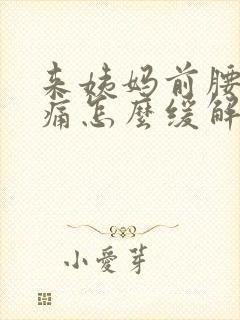 来姨妈前腰
痛怎麽缓解
小愛芽